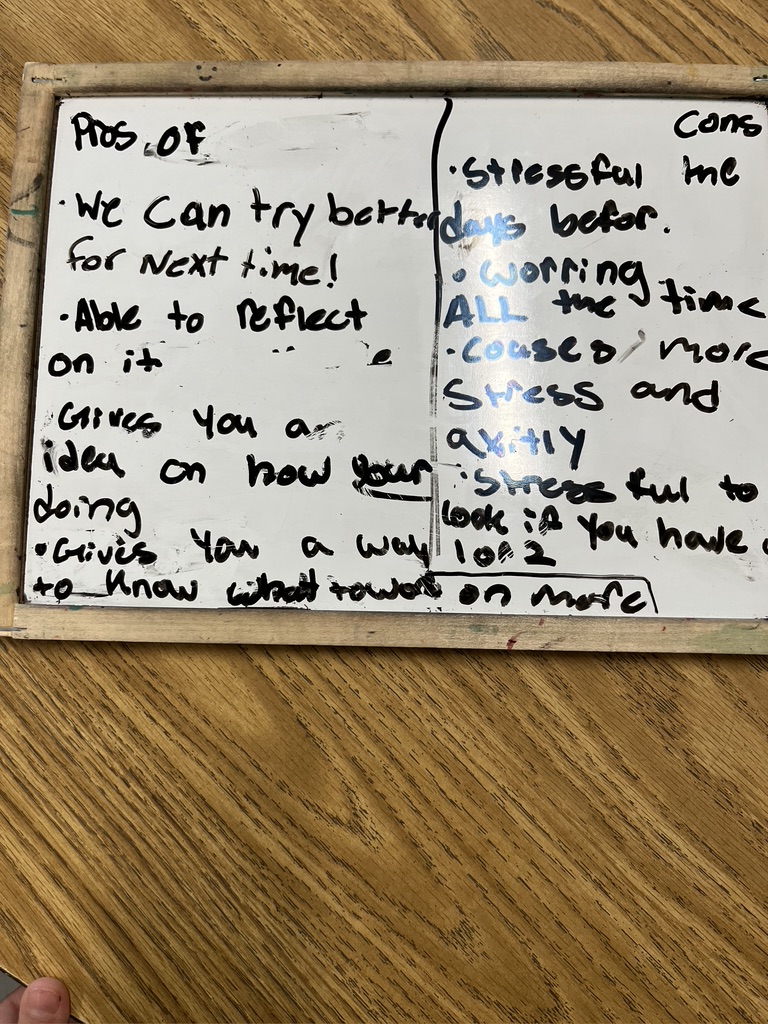 Pros of
• We can try better
for Next time!
• Able to reflect
on it
Gives you a
idea on how your
doing
• Gives you a way
to know what to work on more
Cons
• Stressful the
days befor.
• worring
ALL the time
• couses more
stress and
axitiy
• Stressful to
look if you have a
1 or 2